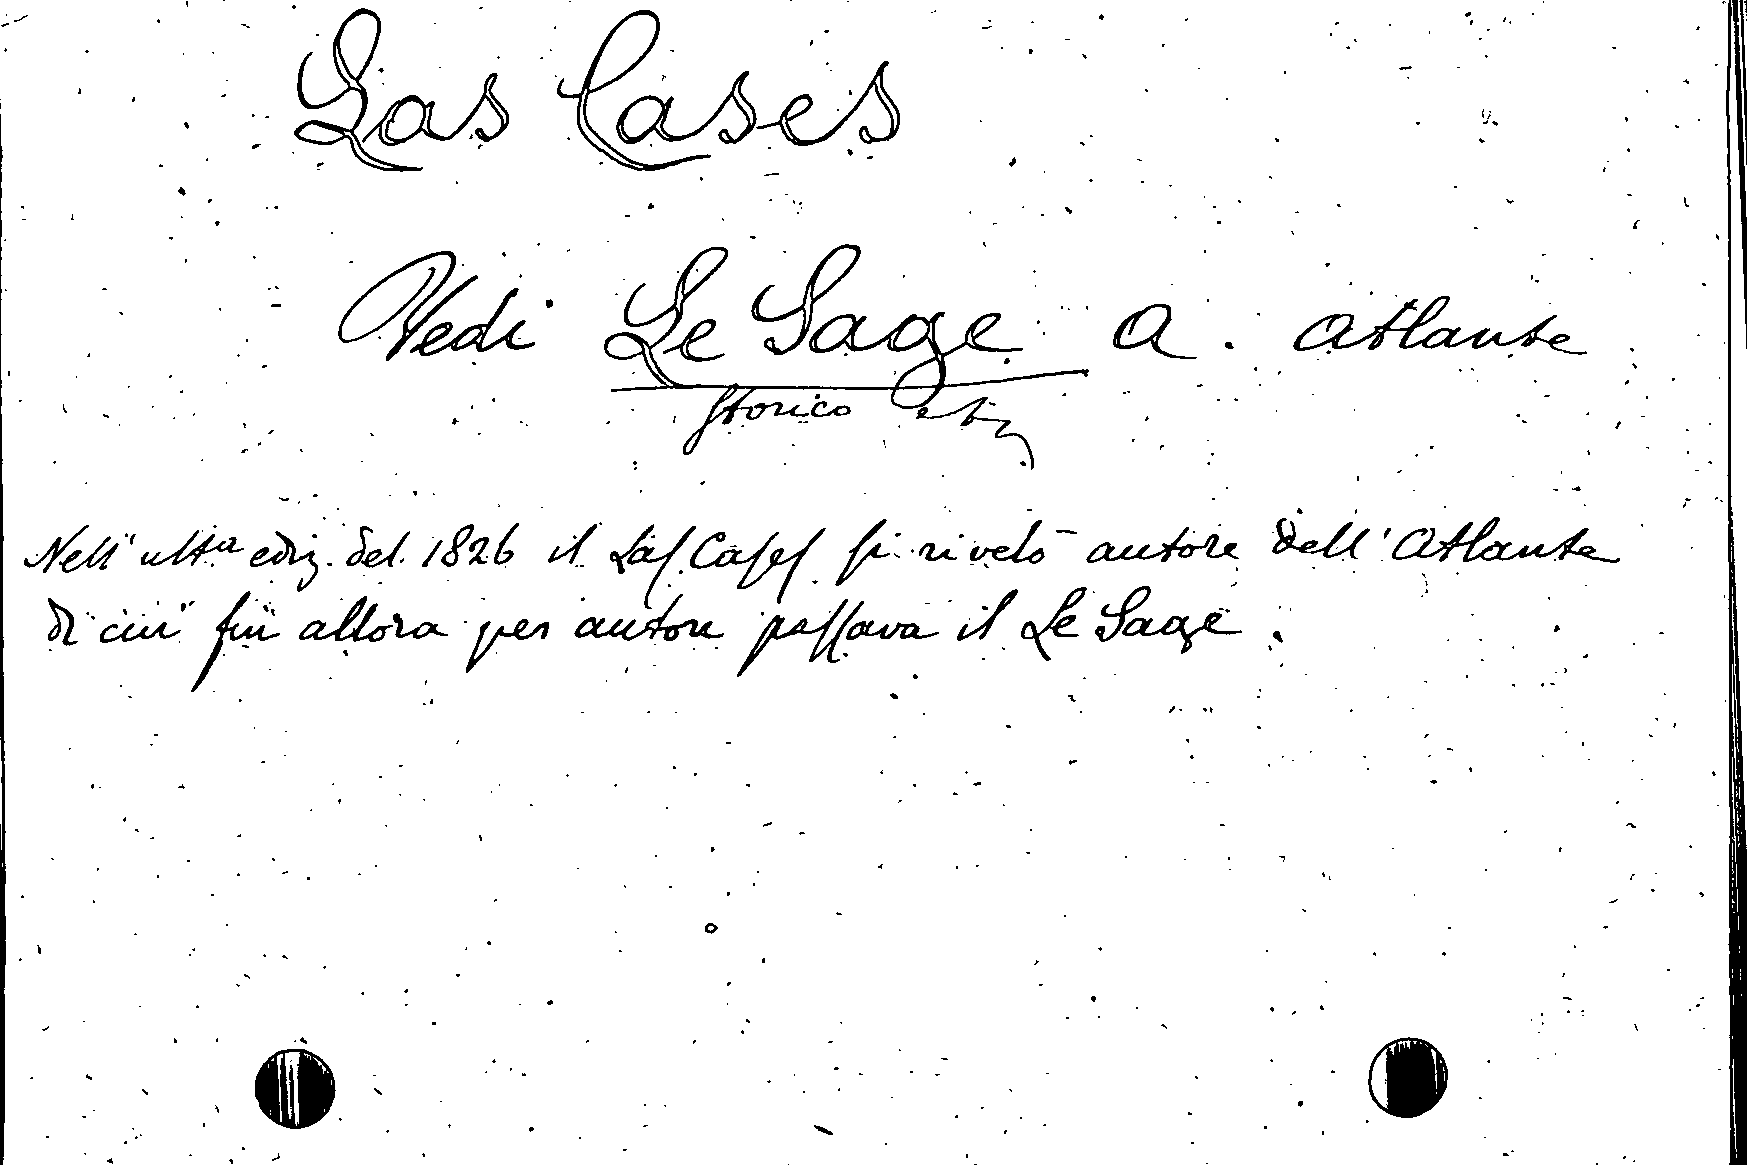 Las Cases
Vedi Le Sage A. Atlante
storico
Nell' ultª ediz. del 1826 il Las Cases si rivelò autore dell'Atlante
di cui fin allora per autore passava il Le Sage.